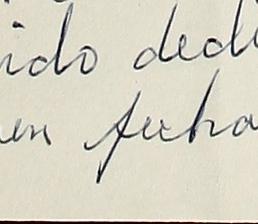 ido dedi
en fecha